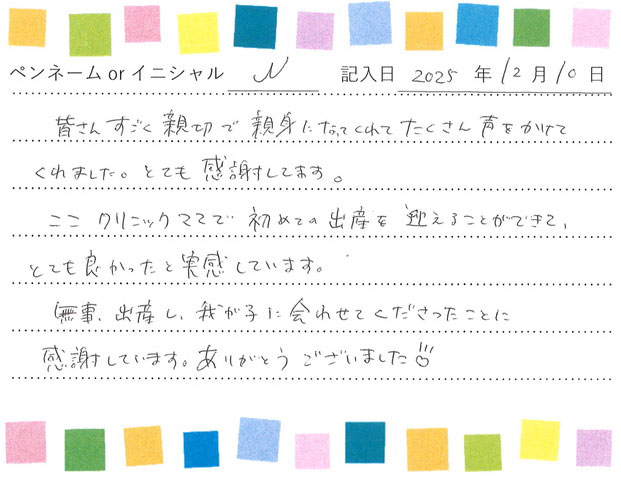 ペンネーム or イニシャル N 記入日 2025 年 12 月 10 日
皆さんすごく親切で親身になってくれてたくさん声をかけて
くれました。とても感謝してます。
ここクリニックママで初めての出産を迎えることができて、
とても良かったと実感しています。
無事、出産し、我が子に会わせてくださったことに
感謝しています。ありがとうございました